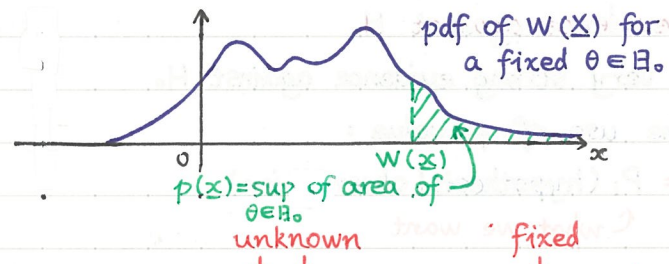 pdf of W(X̲) for
a fixed θ ∈ Θ₀
0
W(x̲)
x
p(x̲) = sup of area of
θ∈Θ₀
unknown
fixed